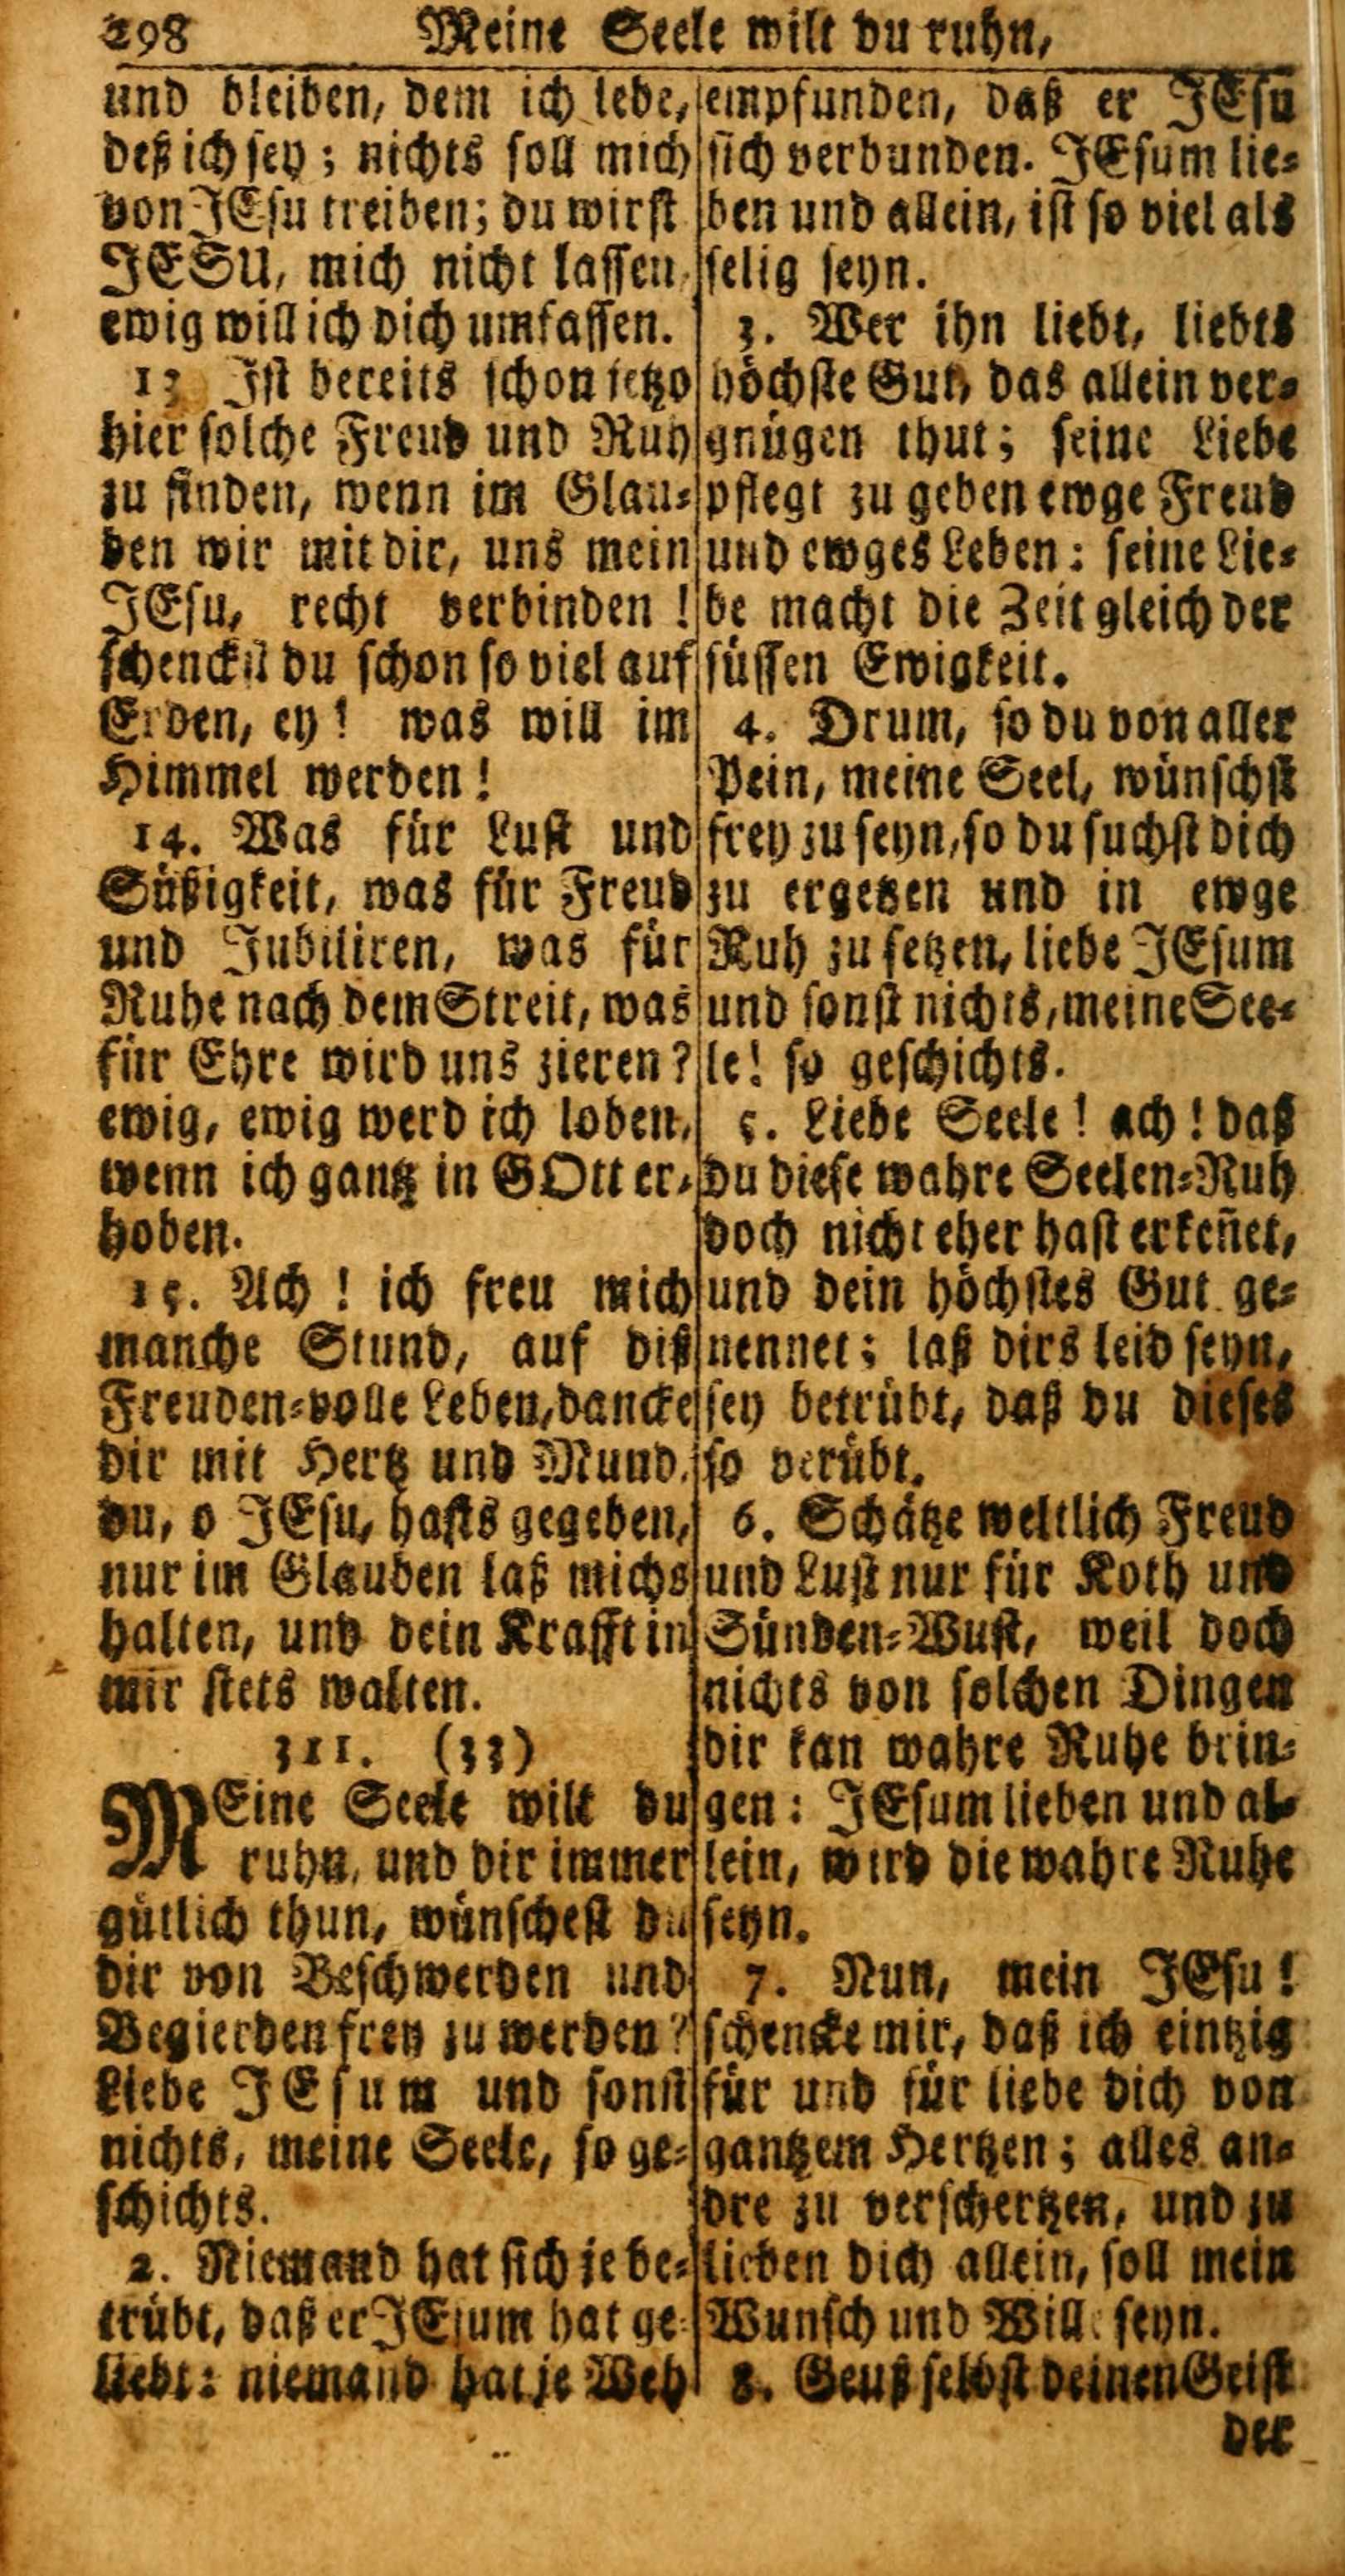 298 Meine Seele wilt du ruhn,
und bleiben, dem ich lebe,
deß ich sey; nichts soll mich
von JEsu treiben; du wirst
JESU, mich nicht lassen,
ewig will ich dich umfassen.
13 Ist bereits schon jetzo
hier solche Freud und Ruh
zu finden, wenn im Glau-
ben wir mit dir, uns mein
JEsu, recht verbinden!
schenckst du schon so viel auf
Erden, ey! was will im
Himmel werden!
14. Was für Lust und
Süßigkeit, was für Freud
und Jubiliren, was für
Ruhe nach dem Streit, was
für Ehre wird uns zieren?
ewig, ewig werd ich loben,
wenn ich gantz in GOtt er-
hoben.
15. Ach! ich freu mich
manche Stund, auf diß
Freuden-volle Leben, dancke
dir mit Hertz und Mund,
du, o JEsu, hasts gegeben,
nur im Glauben laß michs
halten, und dein Krafft in
mir stets walten.
311. (33)
MEine Seele wilt du
ruhn, und dir immer
gütlich thun, wünschest du
dir von Beschwerden und
Begierden frey zu werden?
Liebe JEsum und sonst
nichts, meine Seele, so ge-
schichts.
2. Niemand hat sich je be-
trübt, daß er JEsum hat ge-
liebt: niemand hat je Weh
empfunden, daß er JEsu
sich verbunden. JEsum lie-
ben und allein, ist so viel als
selig seyn.
3. Wer ihn liebt, liebts
höchste Gut, das allein ver-
gnügen thut; seine Liebe
pflegt zu geben ewge Freud
und ewges Leben: seine Lie-
be macht die Zeit gleich der
süssen Ewigkeit.
4. Drum, so du von aller
Pein, meine Seel, wünschst
frey zu seyn, so du suchst dich
zu ergetzen und in ewge
Ruh zu setzen, liebe JEsum
und sonst nichts, meine See-
le! so geschichts.
5. Liebe Seele! ach! daß
du diese wahre Seelen-Ruh
doch nicht eher hast erkeñet,
und dein höchstes Gut ge-
nennet; laß dirs leid seyn,
sey betrübt, daß du dieses
so verübt.
6. Schätze weltlich Freud
und Lust nur für Koth und
Sünden-Wust, weil doch
nichts von solchen Dingen
dir kan wahre Ruhe brin-
gen: JEsum lieben und al-
lein, wird die wahre Ruhe
seyn.
7. Nun, mein JEsu!
schencke mir, daß ich eintzig
für und für liebe dich von
gantzem Hertzen; alles an-
dre zu verschertzen, und zu
lieben dich allein, soll mein
Wunsch und Wille seyn.
8. Geuß selbst deinen Geist
der